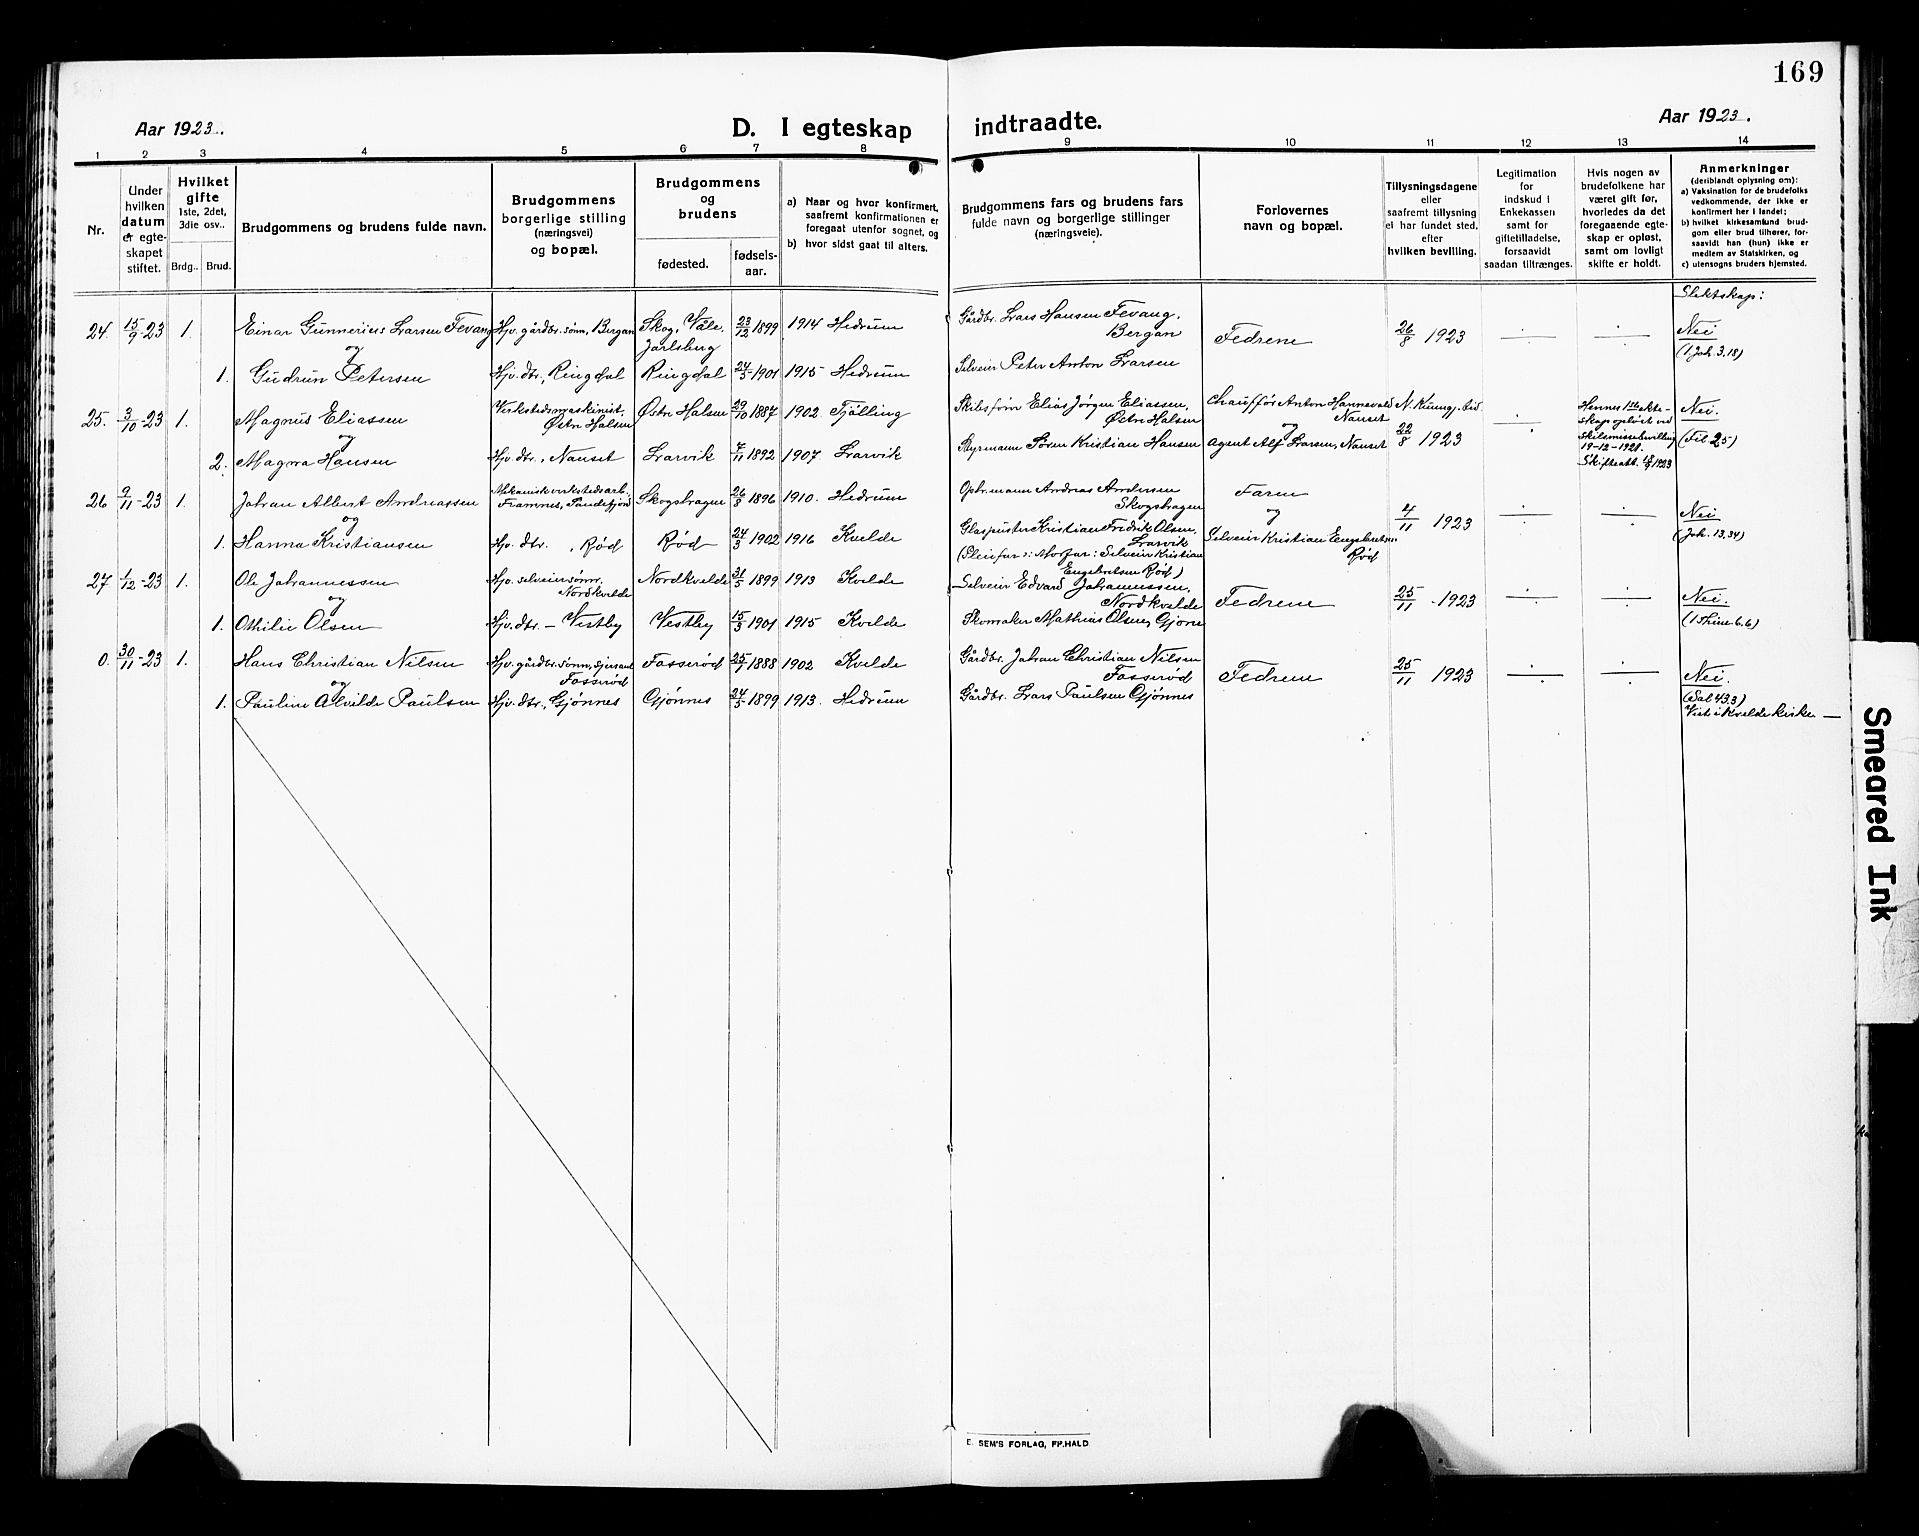 169
Aar 1923.
D. I egteskap indtraadte.
Aar 1923.
1 2 3 4 5 6 7 8 9 10 11 12 13 14
Nr.
Under hvilken datum er egteskapet stiftet.
Hvilket gifte 1ste, 2det, 3die osv..
Brdg.. Brud.
Brudgommens og brudens fulde navn.
Brudgommens borgerlige stilling (næringsvei) og bopæl.
Brudgommens og brudens
fødested.
fødselsaar.
a) Naar og hvor konfirmert, saafremt konfirmationen er foregaat utenfor sognet, og
b) hvor sidst gaat til alters.
Brudgommens fars og brudens fars fulde navn og borgerlige stillinger (næringsveie).
Forlovernes navn og bopæl.
Tillysningsdagene eller saafremt tillysning ei har fundet sted, efter hvilken bevilling.
Legitimation for indskud i Enkekassen samt for giftetilladelse, forsaavidt saadan tiltrænges.
Hvis nogen av brudefolkene har været gift før, hvorledes da det foregaaende egteskap er opløst, samt om lovlig skifte er holdt.
Anmerkninger (deriblandt oplysning om):
a) Vaksination for de brudefolks vedkommende, der ikke er konfirmert her i landet;
b) hvilket kirkesamfund brudgom eller brud tilhører, forsaavidt han (hun) ikke er medlem av Statskirken, og
c) utensogns bruders hjemsted.
Slektskap:
24. 15/9-23 1. Einar Gunnerius Larsen Fevang Hjv. gårdbr. sønn, Bergan Skog, Våle, Jarlsberg 23/12 1899 1914 Hedrum Gårdbr. Lars Hansen Fevang, Bergan Fedrene 26/8 1923 Nei (1 Joh. 3.18)
og
1. Gudrun Petersen Hjv. dtr., Ringdal Ringdal 24/5 1901 1915 Hedrum Selveier Peter Anton Larsen
25. 3/10-23 1. Magnus Eliassen Verkstedsmaskinist, Østre Halsen Østre Halsen 29/10 1887 1902 Tjølling Skibsförer Elias Jørgen Eliassen, Østre Halsen Chauffør Anton Hannevold Nanset N. Kunngj. tid. 22/8 1923 Hennes 1ste ekteskap opløst ved Skilsmissebevilling 19-12-1921. Skifteatt. 1923 Nei. (Fil 2.5)
og
2. Magna Hansen Hjv. dtr., Nanset Larvik 7/11 1892 1907 Larvik Styrmann Søren Kristian Hansen og Agent Alf Larsen, Nanset
26 9/11-23 1. Johan Albert Andreassen Mekanisk verkstedsarb. Framnes, Sandefjord Skogshagen 26/8 1896 1910. Hedrum Opsynsmann Andreas Andersen Skogshagen Faren 4/11 1923 Nei (Joh. 13,34)
og
1. Hanna Kristiansen Hjv. dtr., Rød Rød 24/3 1902 1916 Kvelde Glaspuster Kristian Fredrik Olsen, Larvik (Pleiefar: Morfar: Selveier Kristian Engebretsen Rød) og Selveier Kristian Engebretsen Rød
27 1/12-23 1. Ole Johannessen Hjv. selveiersønn, Nordkvelde Nordkvelde 31/5 1899 1913 Kvelde Selveier Edvard Johannessen, Nordkvelde Fedrene 25/11-1923 Nei. (1 Thim. 6.6)
og
1. Othilie Olsen Hjv. dtr. - Vestby Vestby 15/3 1901 1915 Kvelde Skomaker Mathias Olsen, Gjone
0. 30/11-23 1. Hans Christian Nilsen Hjv. gårdbr. sønn, Fosserød Fosserød 25/7 1888 1902 Kvelde Gårdbr. Johan Christian Nilsen Fosserød Fedrene 25/11 1923 Nei. (Sal 43.3) Viet i Kvelde kirke —
og
1. Pauline Alvilde Paulsen Hjv. dtr., Gjønnes Gjønnes 24/5 1899 1913. Hedrum Gårdbr. Lars Paulsen Gjønnes
E. SEM'S FORLAG, FR.HALD
Smeared Ink